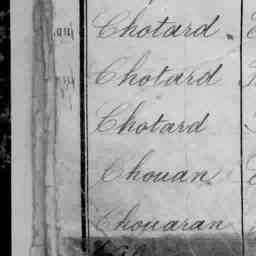 Chotard.
Chotard
Chotard
Chouan
Chouaran